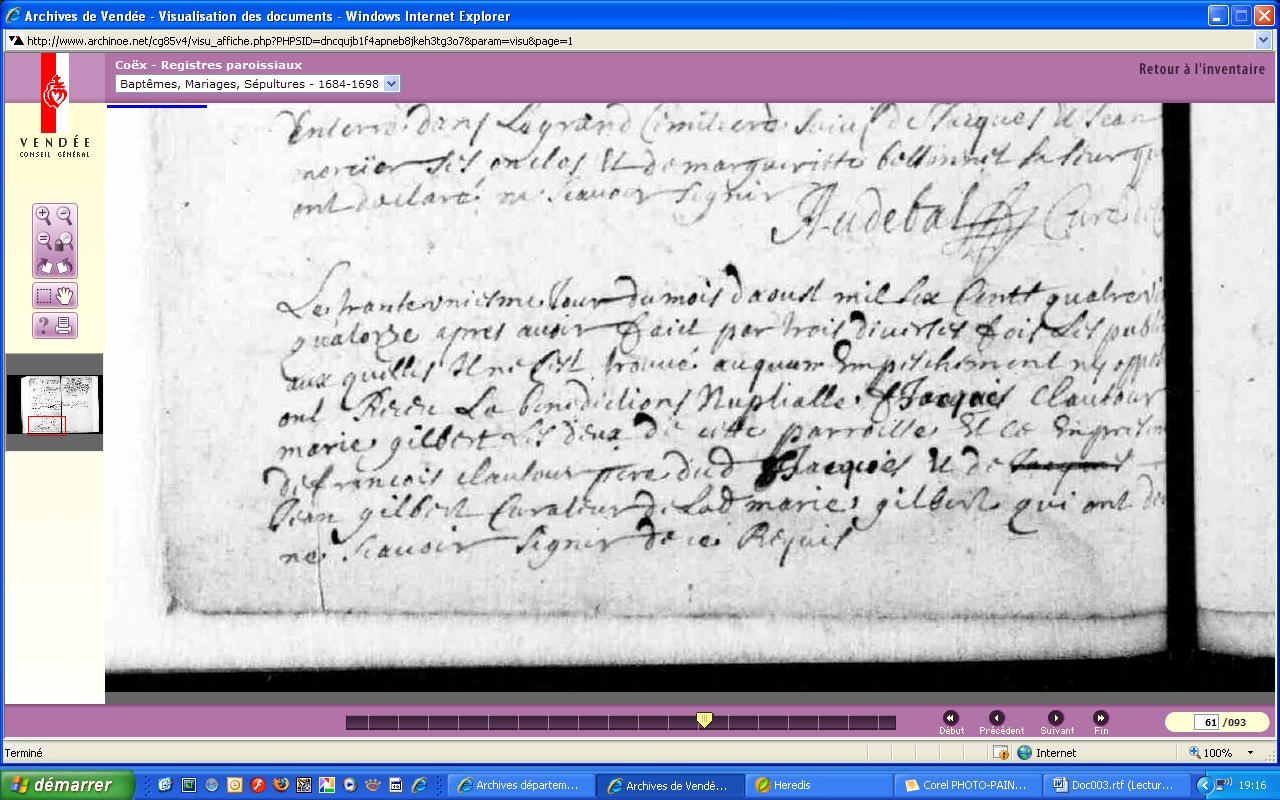 Archives de Vendée - Visualisation des documents - Windows Internet Explorer
http://www.archinoe.net/cg85v4/visu_affiche.php?PHPSID=dncqujb1f4apneb8jkeh3tg3o7&param=visu&page=1
Coëx - Registres paroissiaux
Retour à l'inventaire
Baptêmes, Mariages, Sépultures - 1684-1698
VENDÉE
CONSEIL GÉNÉRAL
Enterré dans Le grand Cimitiere suivi de Jacques et Jean
mercier ses oncles et de margueritte sa
ont declaré ne scavoir signer
Audebal Curé
Le trante uniesme Jour du mois d'aoust mil six Centt quatre
quatorze apres avoir faict par trois diverses fois Les publi
aux quelles Il ne s'est trouvé auqucun Empeschement ny
ont Receu La benedictions Nuptialle Jacques Clautour
marie gilbert Les deux de cette parroisse Et ce En
de francois clautour pere dud Jacques et de Jacques
Jean gilbert Curateur de Lad marie gilbert qui ont
ne scavoir signer de ce Requis
Début
Précédent
Suivant
Fin
61 /093
Terminé
Internet
100%
démarrer
Archives départem...
Archives de Vendé...
Heredis
Corel PHOTO-PAIN...
Doc003.rtf (Lectur...
19:16